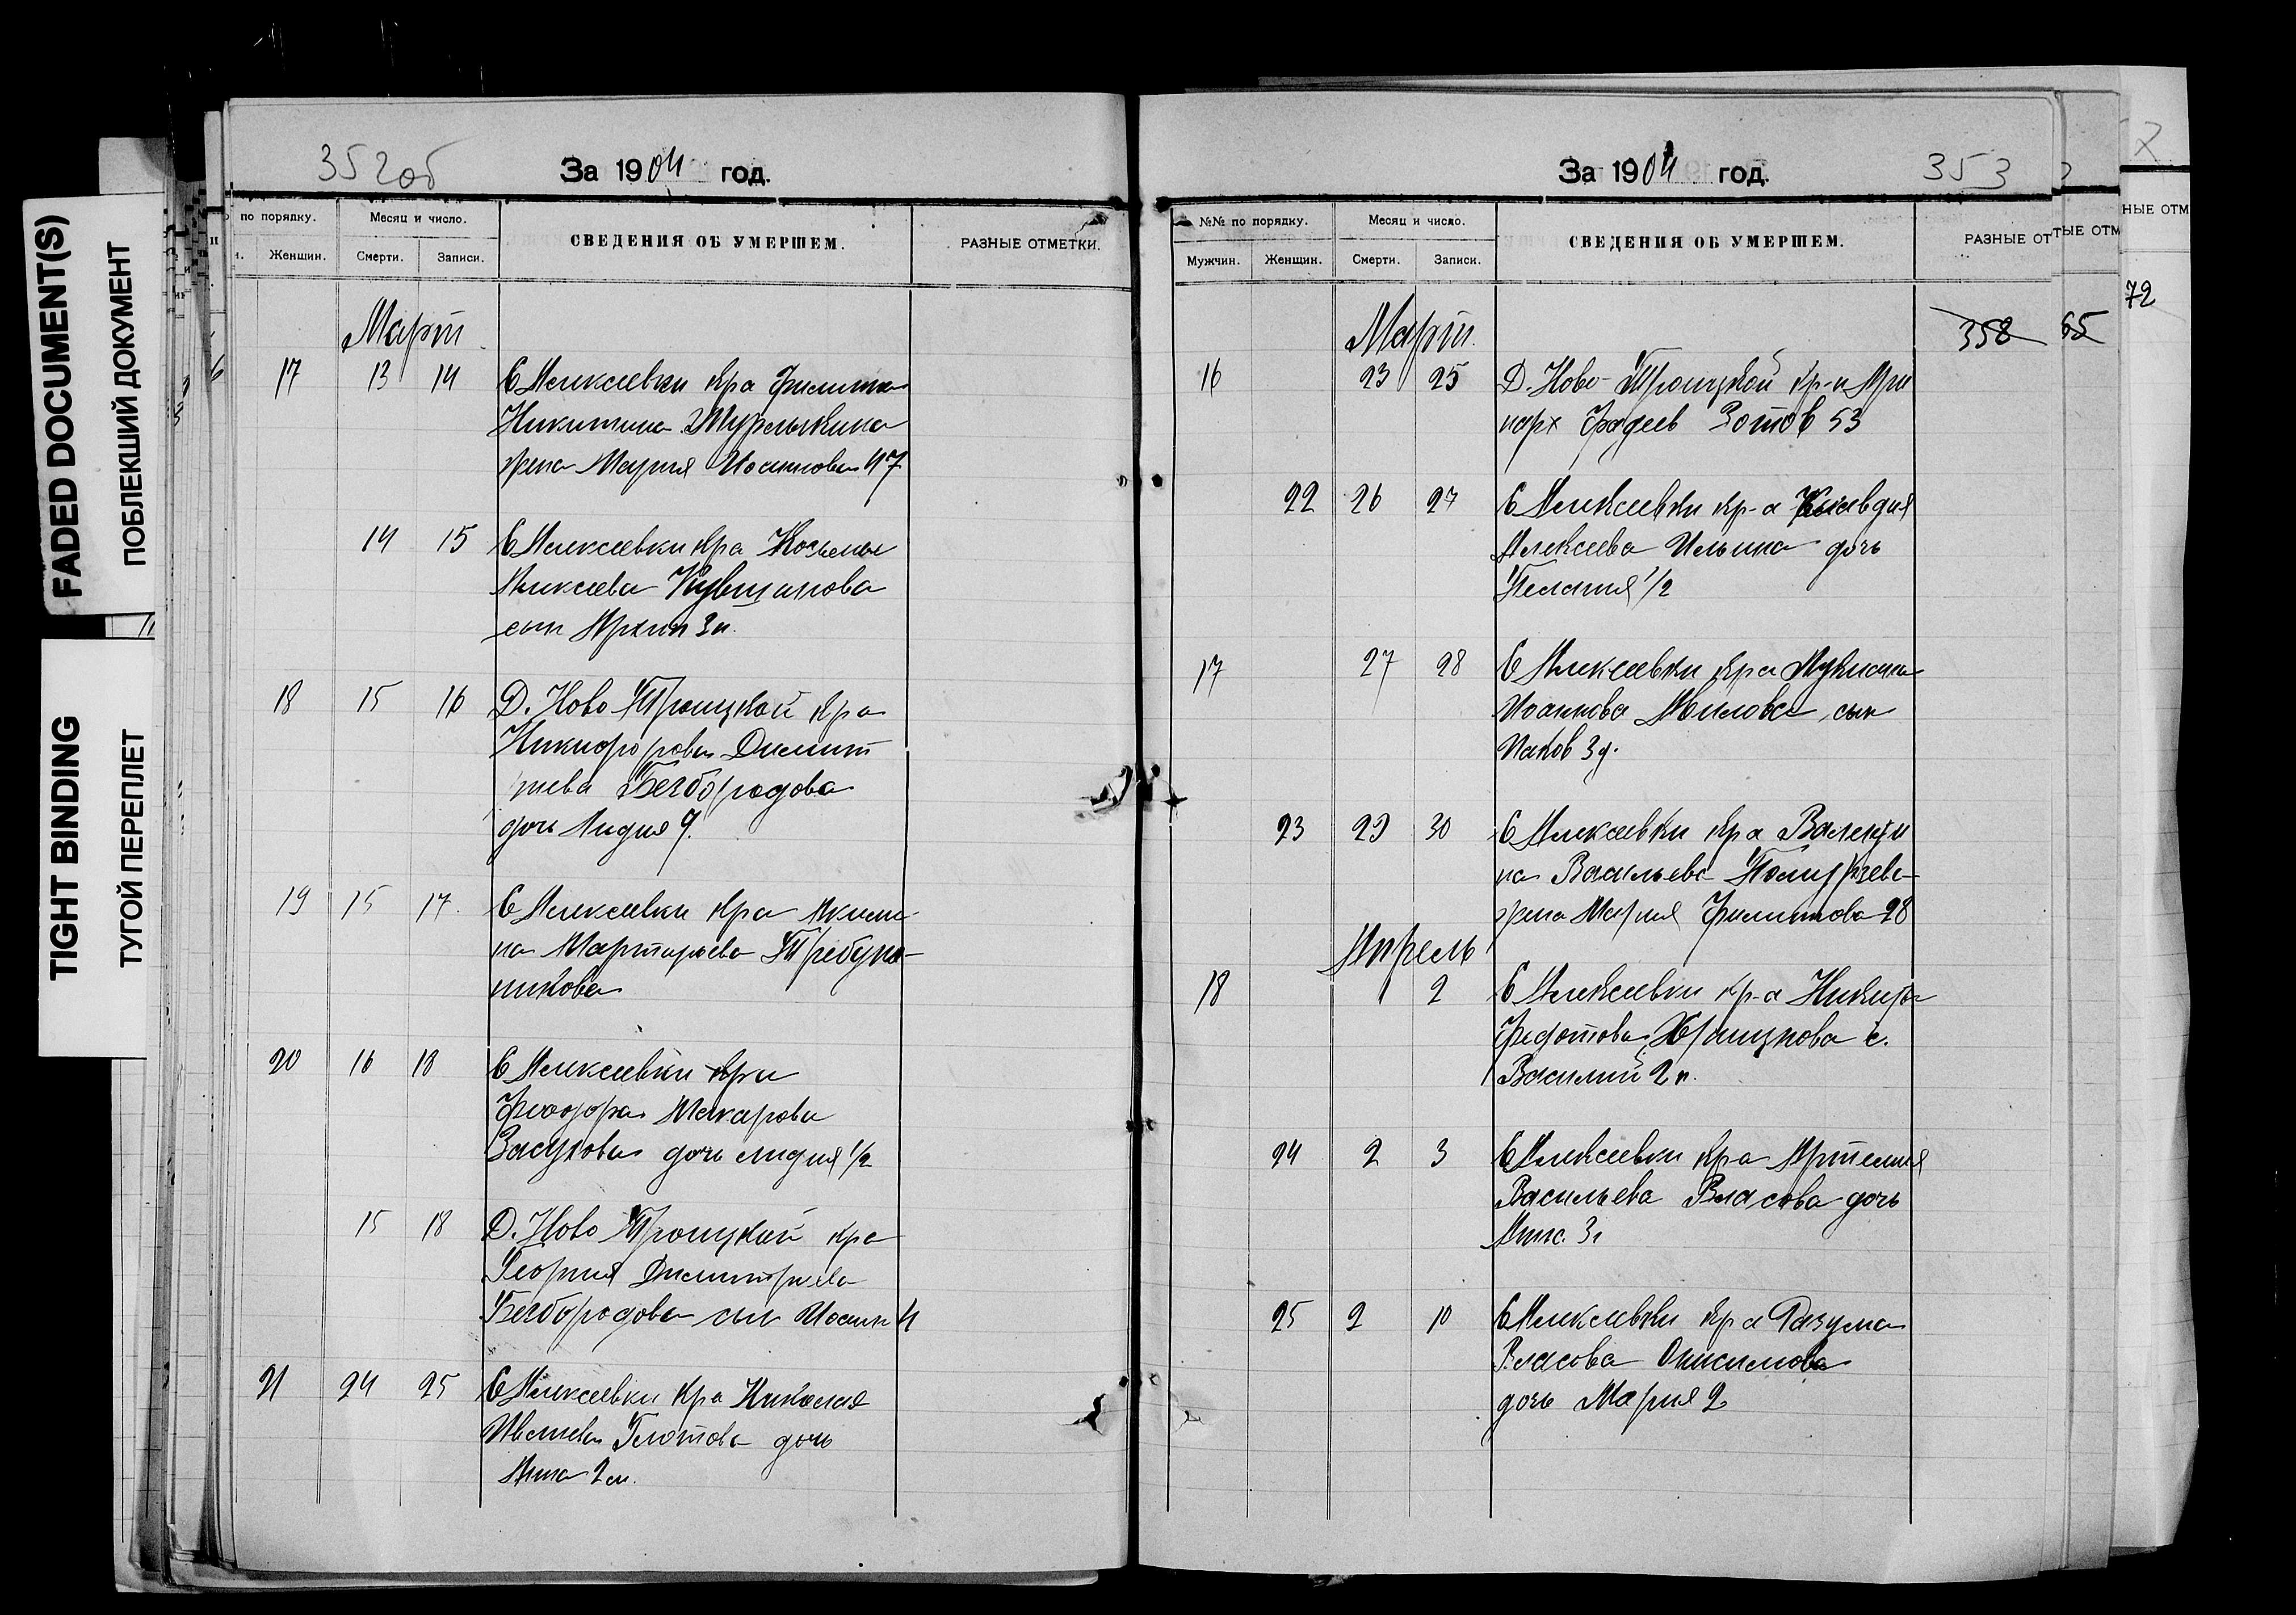 FADED DOCUMENT(S)
ПОБЛЕКШИЙ ДОКУМЕНТ
TIGHT BINDING
ТУГОЙ ПЕРЕПЛЕТ
352об
За 1904 год.
по порядку.
Месяц и число.
СВЕДЕНИЯ ОБ УМЕРШЕМ.
РАЗНЫЕ ОТМЕТКИ.
Женщин.
Смерти.
Записи.
Март
17 13 14 С Алексеевки кра Филиппа
Никитина
жена Мария Иоаннова 47
14 15 С Алексеевки кра Козьмы
Алексеева Кувшинова
сын Архип 3н.
18 15 16 Д. Ново Троицкой кра
Никифорова Димит
риева Безбородова
дочь Лидия 9.
19 15 17. С Алексеевки кра Акили-
на Мартирьева Требун-
никова
20 16 18 С Алексеевки кра
Феодора Макарова
Засухова дочь Лидия 1/2
15 18 Д. Ново Троицкой кра
Георгия Димитриева
Безбородова сын Иоанн 4
21 24 25 С Алексеевки кра Николая
Глотова дочь
Анна 2м.
353
За 1904 год.
№№ по порядку.
Месяц и число.
СВЕДЕНИЯ ОБ УМЕРШЕМ.
РАЗНЫЕ ОТ
ТЫЕ ОТМ
НЫЕ ОТМ
Мужчин.
Женщин.
Смерти.
Записи.
358
65
72
Март.
16 23 25 Д. Ново-Троицкой кр-н Ири
нарх Фадеев Зотов 53
22 26 27 С Алексеевки кр-а Клавдия
Алексеева Ильина дочь
Пелагия 1/2
17 27 28 С Алексеевки кра Лукиана
Иоаннова сын
Иаков 3д.
23 29 30 С Алексеевки кра Валенти
на Васильева
жена Мария Филиппова 28
Апрель
18 1 2 С Алексеевки кр-а Никиты
Федотова с.
Василий 2н.
24 2 3 С Алексеевки кра Артемия
Васильева Власова дочь
Анна 3г
25 2 10 С Алексеевки кра Разума
Власова Онисимова
дочь Мария 2